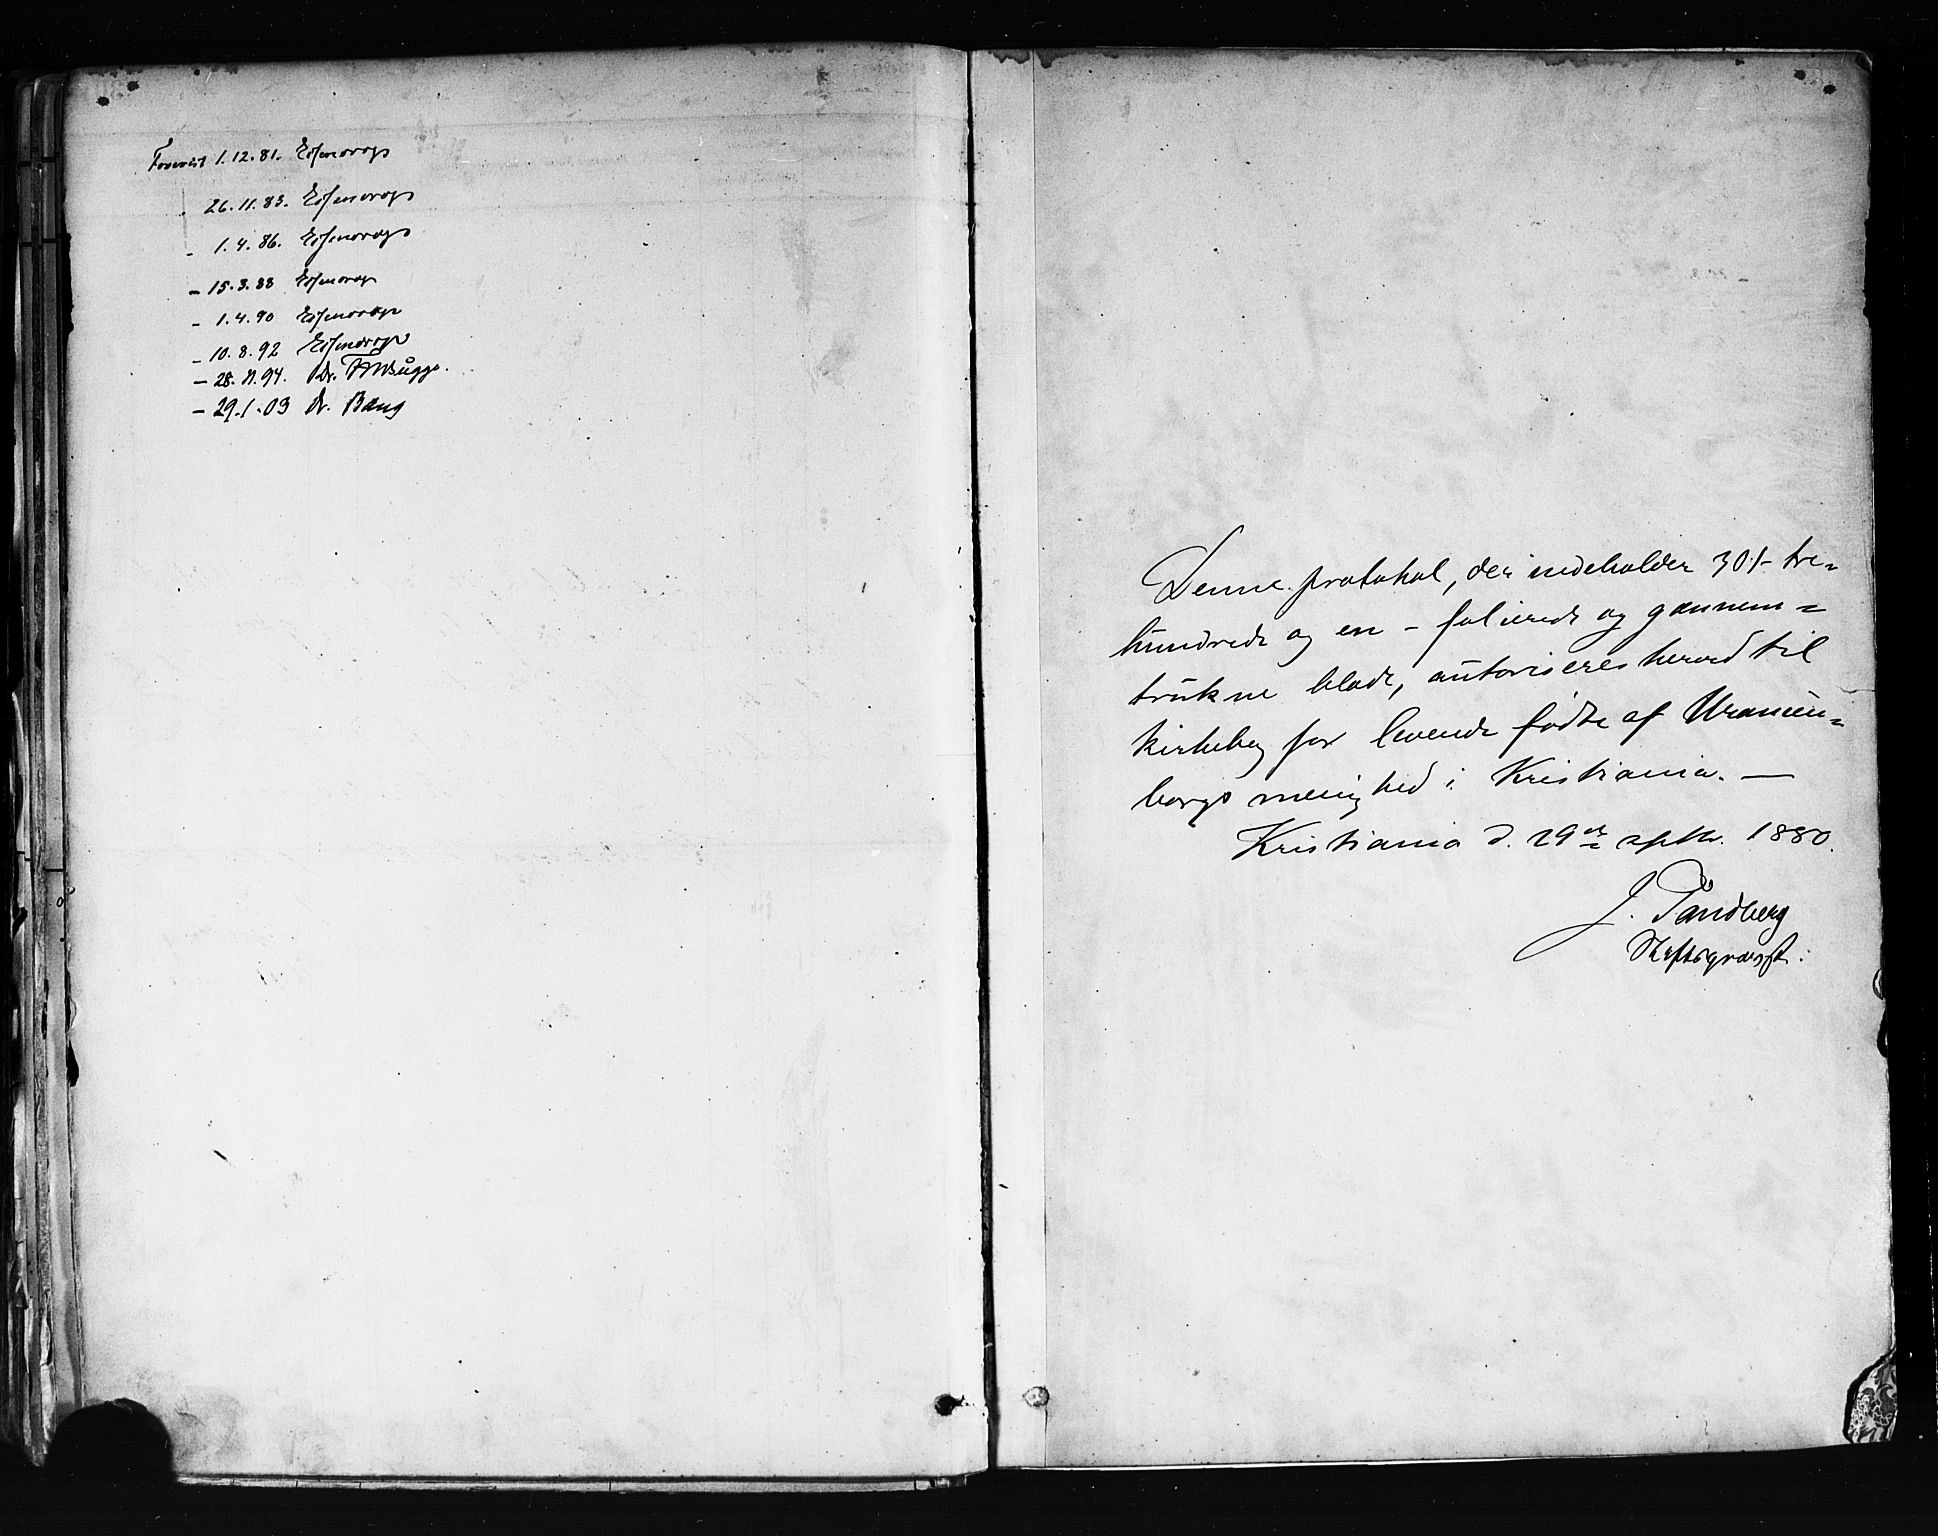 Forevist 1.12.81. Essendrop
- 26.11.83. Essendrop
- 1.4.86. Essendrop
- 15.3.88 Essendrop
- 1.4.90 Essendrop
- 10.8.92 Essendrop
- 28.11.94. Dr. FWBugge.
- 29.1.03 Dr. Bang
Denne protokol, der indeholder 301- tre-
hundrede og en - folierede og gennem-
trukne blade, autoriseres herved til
kirkebog for levende fødte af Uranien-
borgs menighed i Kristiania. -
Kristiania d. 29de septbr. 1880.
J. Tandberg
Stiftsprovst.